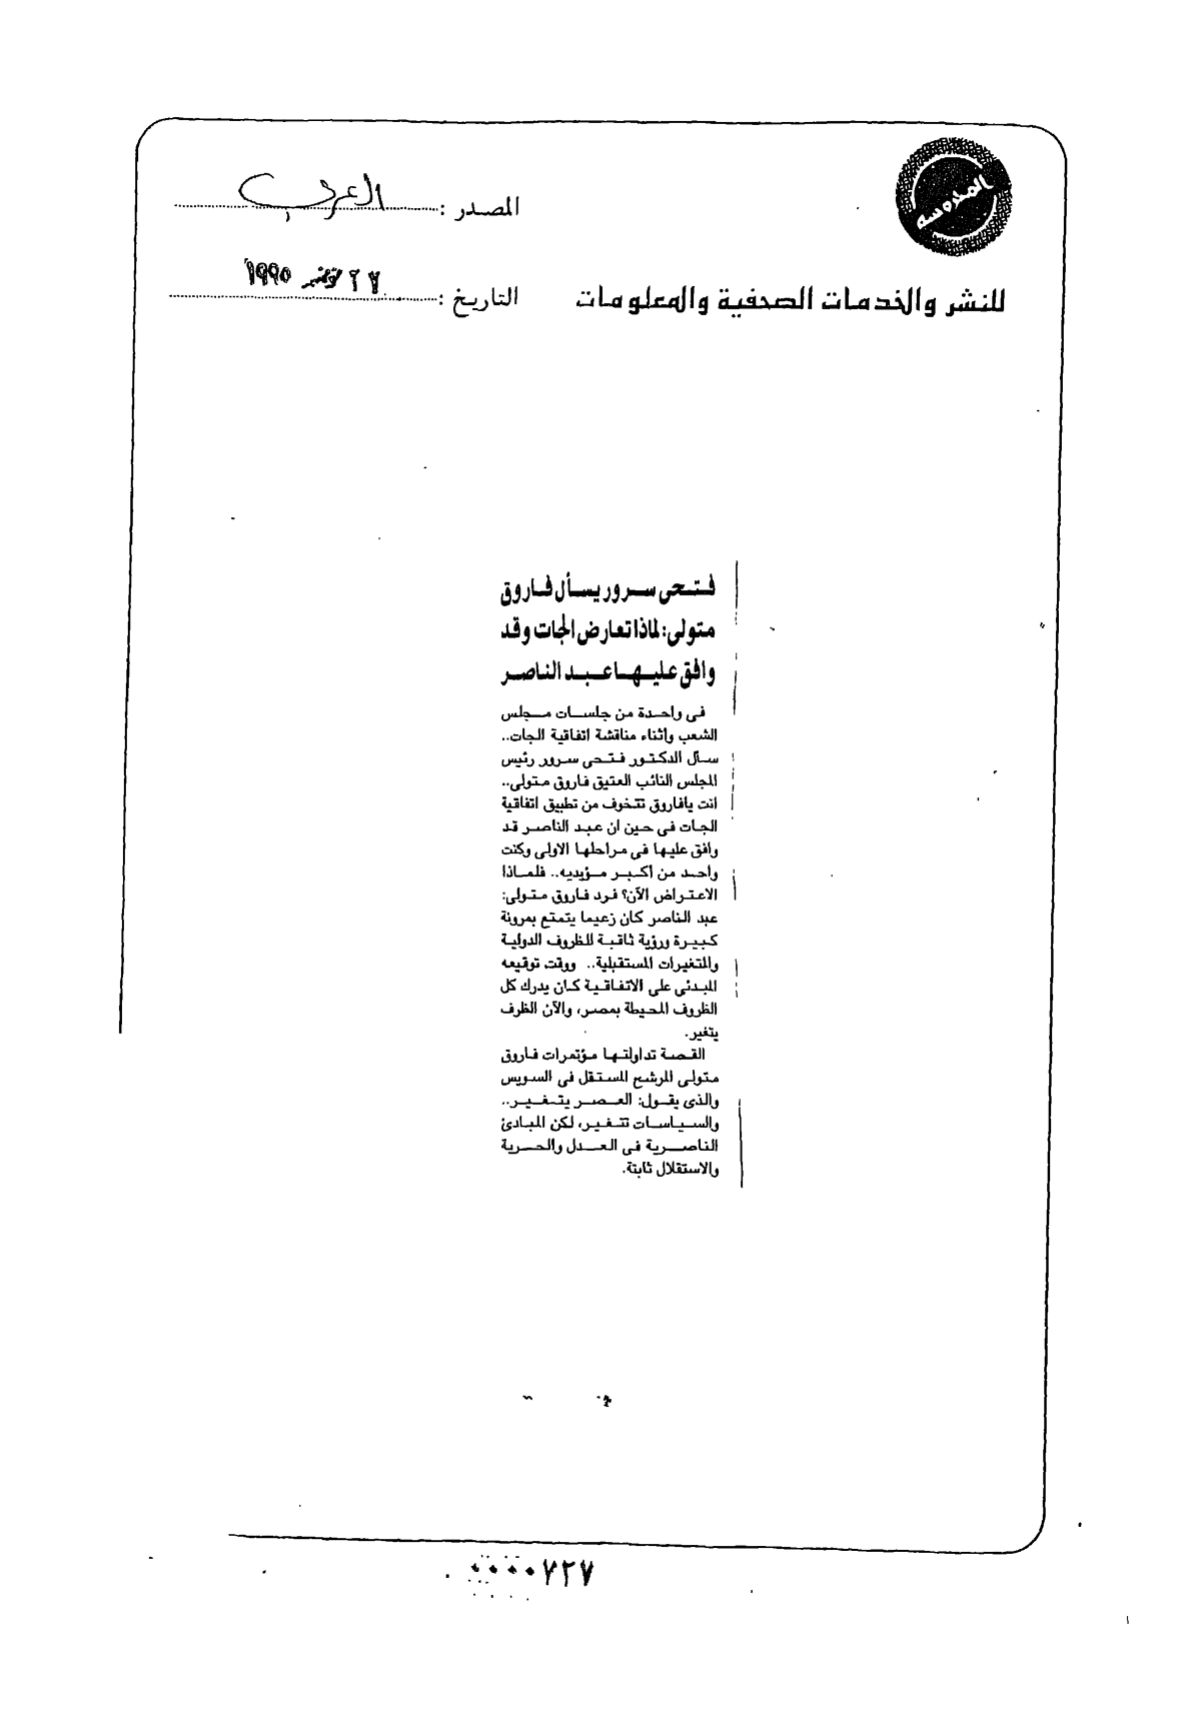 المحروسة
المصدر : العربى
للنشر والخدمات الصحفية والمعلومات
التاريخ : ٢٧ نوفمبر ١٩٩٥
فتحى سرور يسأل فاروق
متولى: لماذا تعارض الجات وقد
وافق عليها عبد الناصر
فى واحدة من جلسات مجلس
الشعب واثناء مناقشة اتفاقية الجات..
سأل الدكتور فتحى سرور رئيس
المجلس النائب العتيق فاروق متولى..
انت يافاروق تتخوف من تطبيق اتفاقية
الجات فى حين ان عبد الناصر قد
وافق عليها فى مراحلها الاولى وكنت
واحد من أكبر مؤيديه.. فلماذا
الاعتراض الآن؟ فرد فاروق متولى:
عبد الناصر كان زعيما يتمتع بمرونة
كبيرة ورؤية ثاقبة للظروف الدولية
والمتغيرات المستقبلية.. ووقت توقيعه
المبدئى على الاتفاقية كان يدرك كل
الظروف المحيطة بمصر، والآن الظرف
يتغير.
القصة تداولتها مؤتمرات فاروق
متولى المرشح المستقل فى السويس
والذى يقول: العصر يتغير..
والسياسات تتغير، لكن المبادئ
الناصرية فى العدل والحرية
والاستقلال ثابتة.
٠٠٠٠٧٢٧